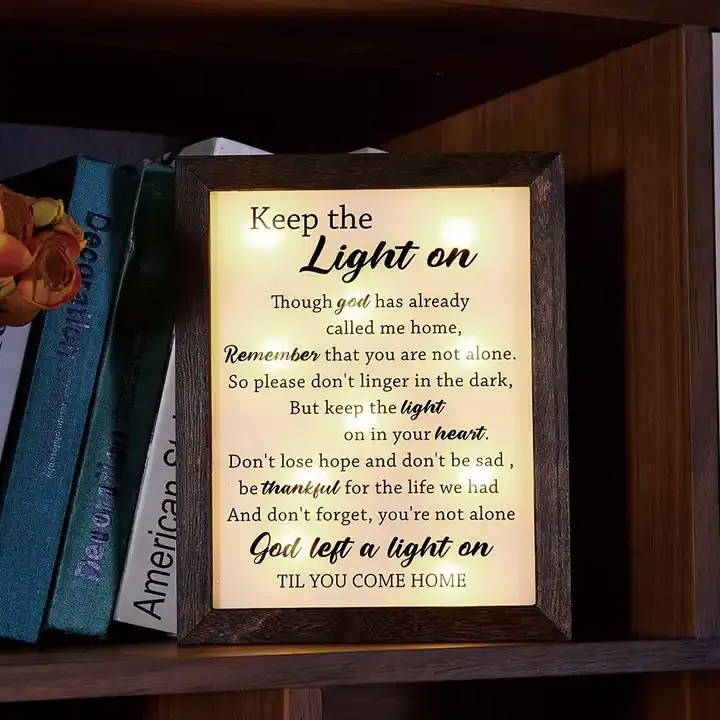 Keep the
Light on
Though god has already
called me home,
Remember that you are not alone.
So please don't linger in the dark,
But keep the light
on in your heart.
Don't lose hope and don't be sad ,
be thankful for the life we had
And don't forget, you're not alone
God left a light on
TIL YOU COME HOME
Decoration
American